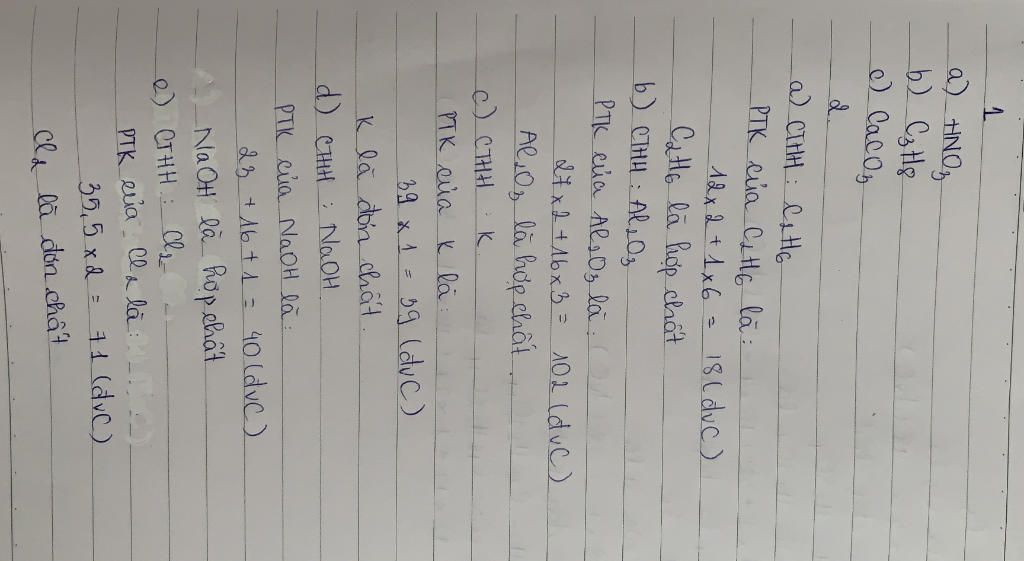 1
a) HNO₃
b) C₃H₈
c) CaCO₃
2
a) CTHH : C₂H₆
PTK của C₂H₆ là :
12 x 2 + 1 x 6 = 18 (dvC)
C₂H₆ là hợp chất
b) CTHH : Al₂O₃
PTK của Al₂O₃ là :
27 x 2 + 16 x 3 = 102 (dvC)
Al₂O₃ là hợp chất
c) CTHH : K
PTK của K là :
39 x 1 = 39 (dvC)
K là đơn chất.
d) CTHH : NaOH
PTK của NaOH là :
23 + 16 + 1 = 40 (dvC)
NaOH là hợp chất
e) CTHH : Cl₂
PTK của Cl₂ là :
35,5 x 2 = 71 (dvC)
Cl₂ là đơn chất